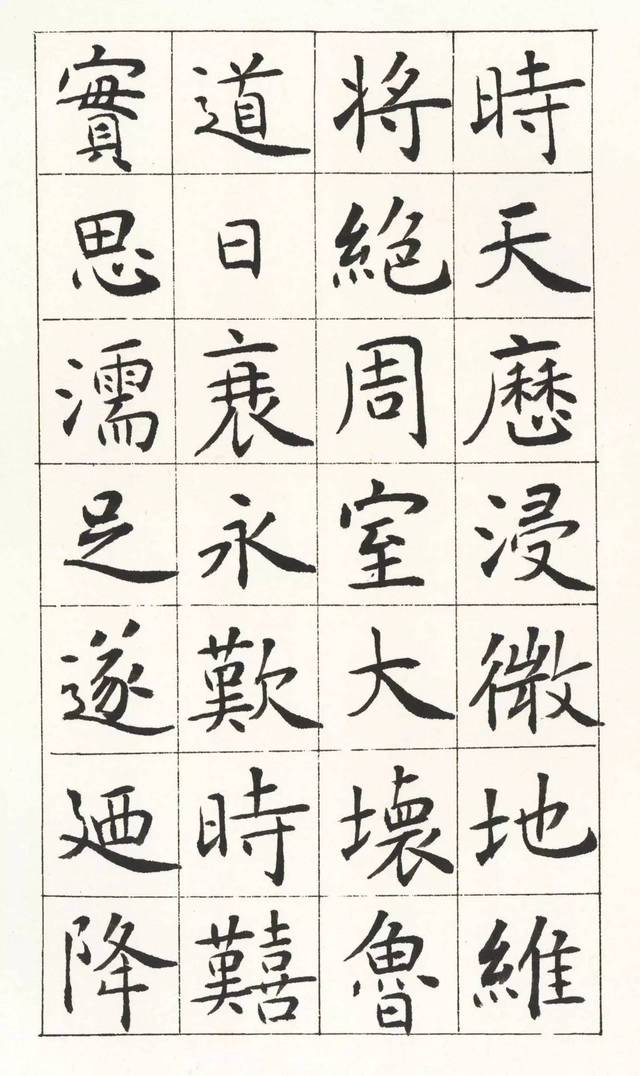 時天歷浸微地維
將絕周室大壞魯
道日衰永歎時囏
實思濡足遂迺降